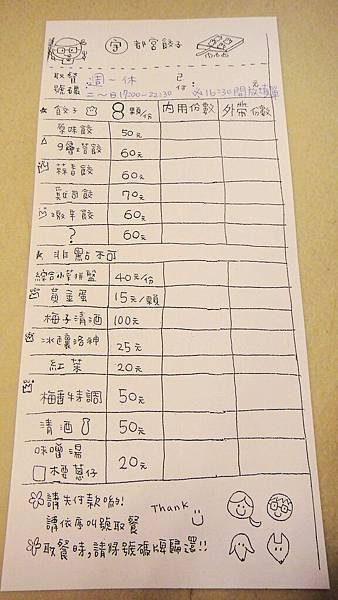 宫 都宮餃子
取餐號碼 週一休 已付 元
二~日17:00~22:30 ※16:30開放填單
★餃子 8顆/份 內用份數 外帶份數
原味餃 50元
9層塔餃 60元
蒜香餃 60元
菇菇餃 70元
激辛餃 60元
? 60元
★非點不可
綜合小菜拼盤 40元/份
黃金蛋 15元/顆
梅子清酒 100元
冰釀洛神 25元
紅茶 20元
梅香特調 50元
清酒 50元
味噌湯
□不要蔥仔 20元
請先付款喲!
請依序叫號取餐
Thank
取餐時,請將號碼牌歸還!!